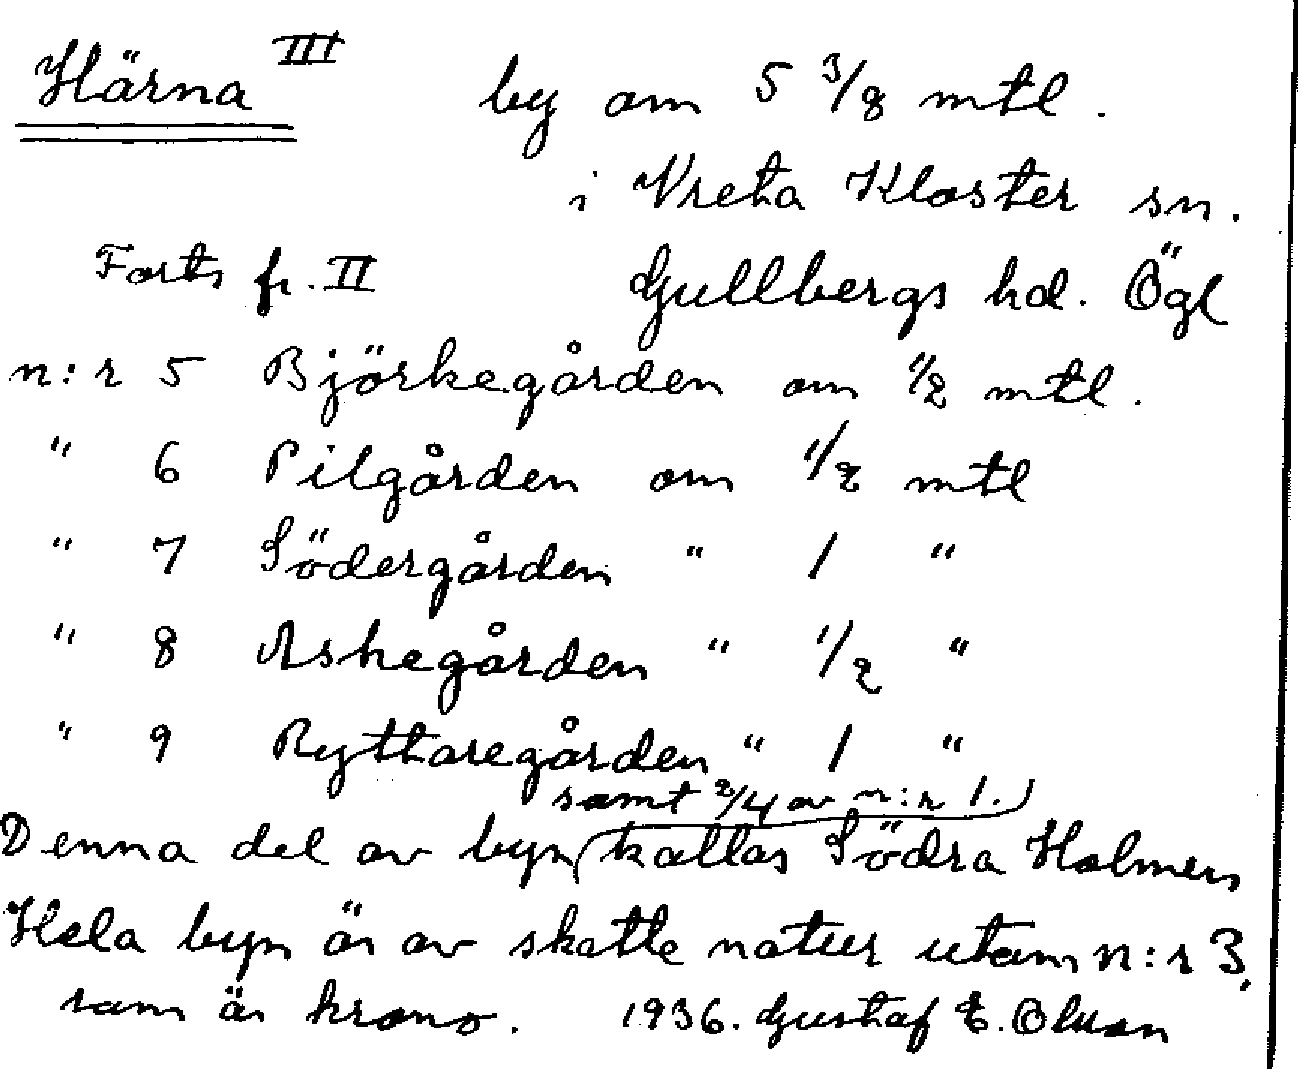 Härna III by om 5 3/8 mtl.
i Vreta Kloster sn.
Forts fr. II Gullbergs hd. Ögl
n:r 5 Björkegården om 1/2 mtl.
" 6 Pilgården om 1/2 mtl
" 7 Södergården " 1 "
" 8 Askegården " 1/2 "
" 9 Ryttaregården " 1 "
samt 2/4 av n:r 1.
Denna del av byn kallas Södra Holmen
Hela byn är av skatte natur utom n:r 3,
som är krono. 1936. Gustaf E. Olsson